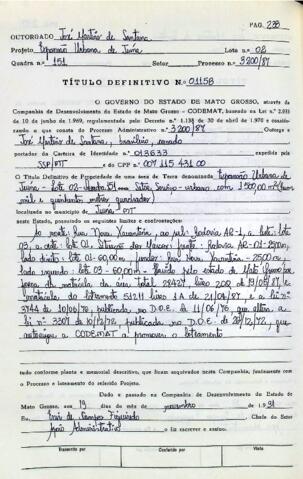 PAG. 238
OUTORGADO José Martins de Santana
Projeto Expansão Urbana de Juína Lote n.o 02
Quadra n.o 151 Setor Processo n.o 3200/87
TÍTULO DEFINITIVO N.o 01158
O GOVERNO DO ESTADO DE MATO GROSSO, através da
Companhia de Desenvolvimento do Estado de Mato Grosso - CODEMAT, baseado na Lei n.o
10 de junho de 1969, regulamentada pelo Decreto n.o 1.138 de 30 de abril de 1970 e considerando
o que consta do Processo Administrativo n.o 3200/87 Outorga a
José Martins de Santana, brasileiro, casado
portador da Carteira de Identidade n.o 013633 expedida pela
SSP/MT e do CPF n.o 041 115 431 00
O Título Definitivo de Propriedade de uma área de Terra denominada Expansão Urbana de
Juína - Lote 02 - Quadra 151 - Setor Serviço - urbano com 1.500,00 m2 (hum
mil e quinhentos metros quadrados)
localizada no município de Juína - MT
neste Estado, passando os seguintes limites e confrontações:
ao norte: Rua Nova Xavantina, ao sul: Rodovia AR-1, a leste: lote
03, a oeste: lote 01, frente: Rodovia AR-01 - 25,00m,
lado direito: lote 01 - 60,00m, fundos: Rua Nova Xavantina - 25,00m,
lado esquerdo: lote 03 - 60,00m
matrícula da área total 28427 livro de 19/08/87, e
matrícula do loteamento 51211 livro de 21/04/87 e a lei nº
3744 de 10/06/76, publicada no D.O.E. de 11/06/76, que altera a
lei nº 3307 de 10/12/72, publicada no D.O.E. de 22/12/72, que
autorizou a CODEMAT a promover o loteamento
tudo conforme planta e memorial descritivo, que ficam arquivados nesta Companhia, juntamente com
o Processo e loteamento do referido Projeto.
Dado e passado na Companhia de Desenvolvimento do Estado de
Mato Grosso, em 19 dias do mês de novembro de 1.991
Eu, de Campos Figueiredo Chefe do Setor
Apoio Administrativo o fiz escrever e assino.
Transcrito por Conferido por Visto